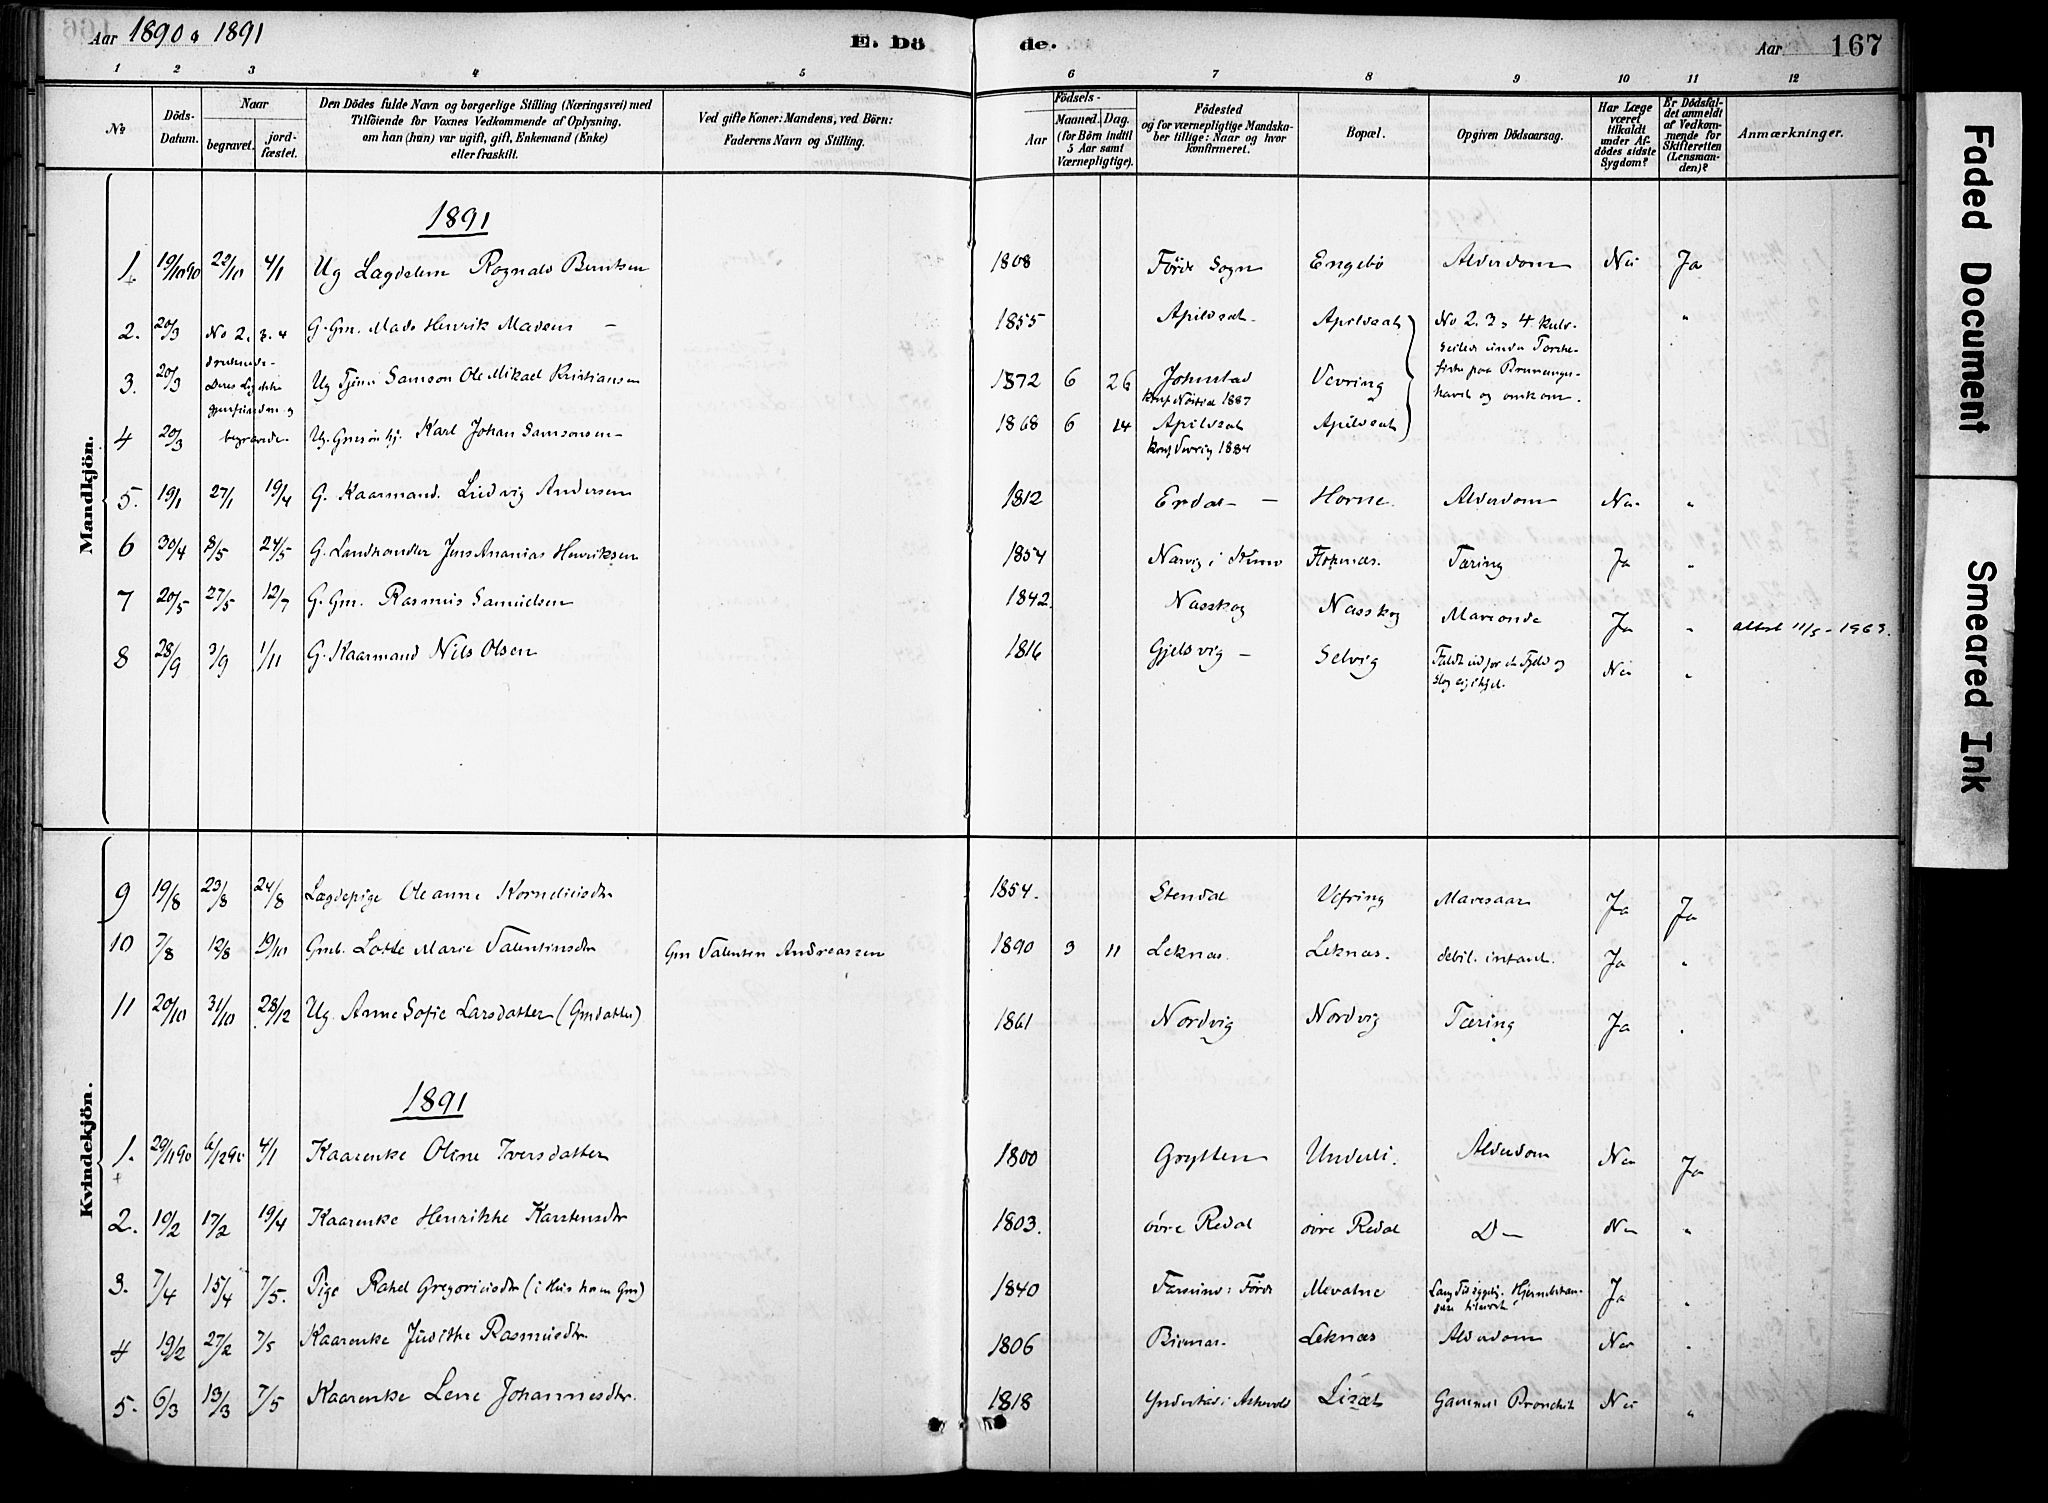 Aar 1890 & 1891 E. Dö de. Aar 167
1 2 3 4 5 6 7 8 9 10 11 12
No
Döds-Datum.
Naar
begravet. jord-fæstet.
Den Dödes fulde Navn og borgerlige Stilling (Næringsvei) med
Tilföiende for Voxnes Vedkommende af Oplysning,
om han (hun) var ugift, gift, Enkemand (Enke)
eller fraskilt.
Ved gifte Koner: Mandens, ved Börn:
Faderens Navn og Stilling.
Födsels-
Aar Maaned. Dag.
(for Börn indtil
5 Aar samt
Værnepligtige).
Födested
og for værnepligtige Mandska-
ber tillige: Naar og hvor
konfirmeret.
Bopæl.
Opgiven Dödsaarsag.
Har Læge
været
tilkaldt
under Af-
dödes sidste
Sygdom?
Er Dödsfal-
det anmeldt
af Vedkom-
mende for
Skifteretten
(Lensman-
den)?
Anmærkninger.
Mandkjön.
1891
1. 19/10 90 22/10 4/1 Ug Lægdslem Rognald Berntsen 1808 Förde Sogn Engebö Alderdom Nei Ja
2. 20/3 No 2, 3, 4 G. Gm. Mads Henrik Madsen – 1855 Apildsæt Apildsæt No 2, 3, 4 kuld- "
druknede. seilede under Torske-
3. 20/3 Deres Lig ikke Ug Tjener Samson Ole Mikael Kristiansen 1872 6 26 Johnstad Vevring fiske paa
gjenfundne og konf Nöstdal 1887 havet og omkom.
4 20/3 begravede. Ug. Karl Johan Samsonsen – 1868 6 14 Apildsæt Apildsæt
konf Vevring 1884
5. 19/1 27/1 19/4 G. Kaarmand. Ludvig Andersen 1812 Erdal – Horne. Alderdom Nei "
6 30/4 8/5 24/5 G. Landhandler Jens Ananias Henriksen 1854 Flokenæs. Tæring Ja "
7 20/5 27/5 12/7 G. Gm. Rasmus Samuelsen 1842. Nasskog Nasskog Ja " 11/5 – 1963.
8 28/9 3/9 1/11 G. Kaarmand Nils Olsen 1816 Gjelsvig – Selvig Faldt udfor et Fjeld og Nei "
slog sig ihjel.
Kvindekjön.
9 19/8 23/8 24/8 Lægdepige Oleanne Korneliusdtr 1854. Stendal Vefring Mavesaar Ja Ja
10 7/8 12/8 19/10 Gmb. Lotte Marie Valentinsdtr Gm Valentin Andreassen 1890 3 11 Leknæs. Leknæs. debil. infant. Ja "
11 20/10 31/10 28/12 Ug. Anne Sofie Larsdatter (Gmdatter) 1861 Nordvig Nordvig Tæring Ja "
1891
1. 29/11 90 6/12 90 4/1 Kaarenke Oline Iversdatter 1800 Grytten Underli. Alderdom Nei Ja
2. 10/2 17/2 19/4 Kaarenke Henrikke Karstensdtr 1803. övre Redal övre Redal D– Nei "
3. 7/4 15/4 7/5. Pige Rahel Gregoriusdtr (i Hus hos en Gm) 1840 Farsund i Förde Mevatne Ja "
4 19/2 27/2 7/5 Kaarenke Judithe Rasmusdtr 1806 Leknæs Alderdom Nei "
5. 6/3 13/3 7/5 Kaarenke Lene Johannesdtr. 1818 Yndestad i Askvold Lisæt Gammel Bronchit Nei "
Faded Document
Smeared Ink